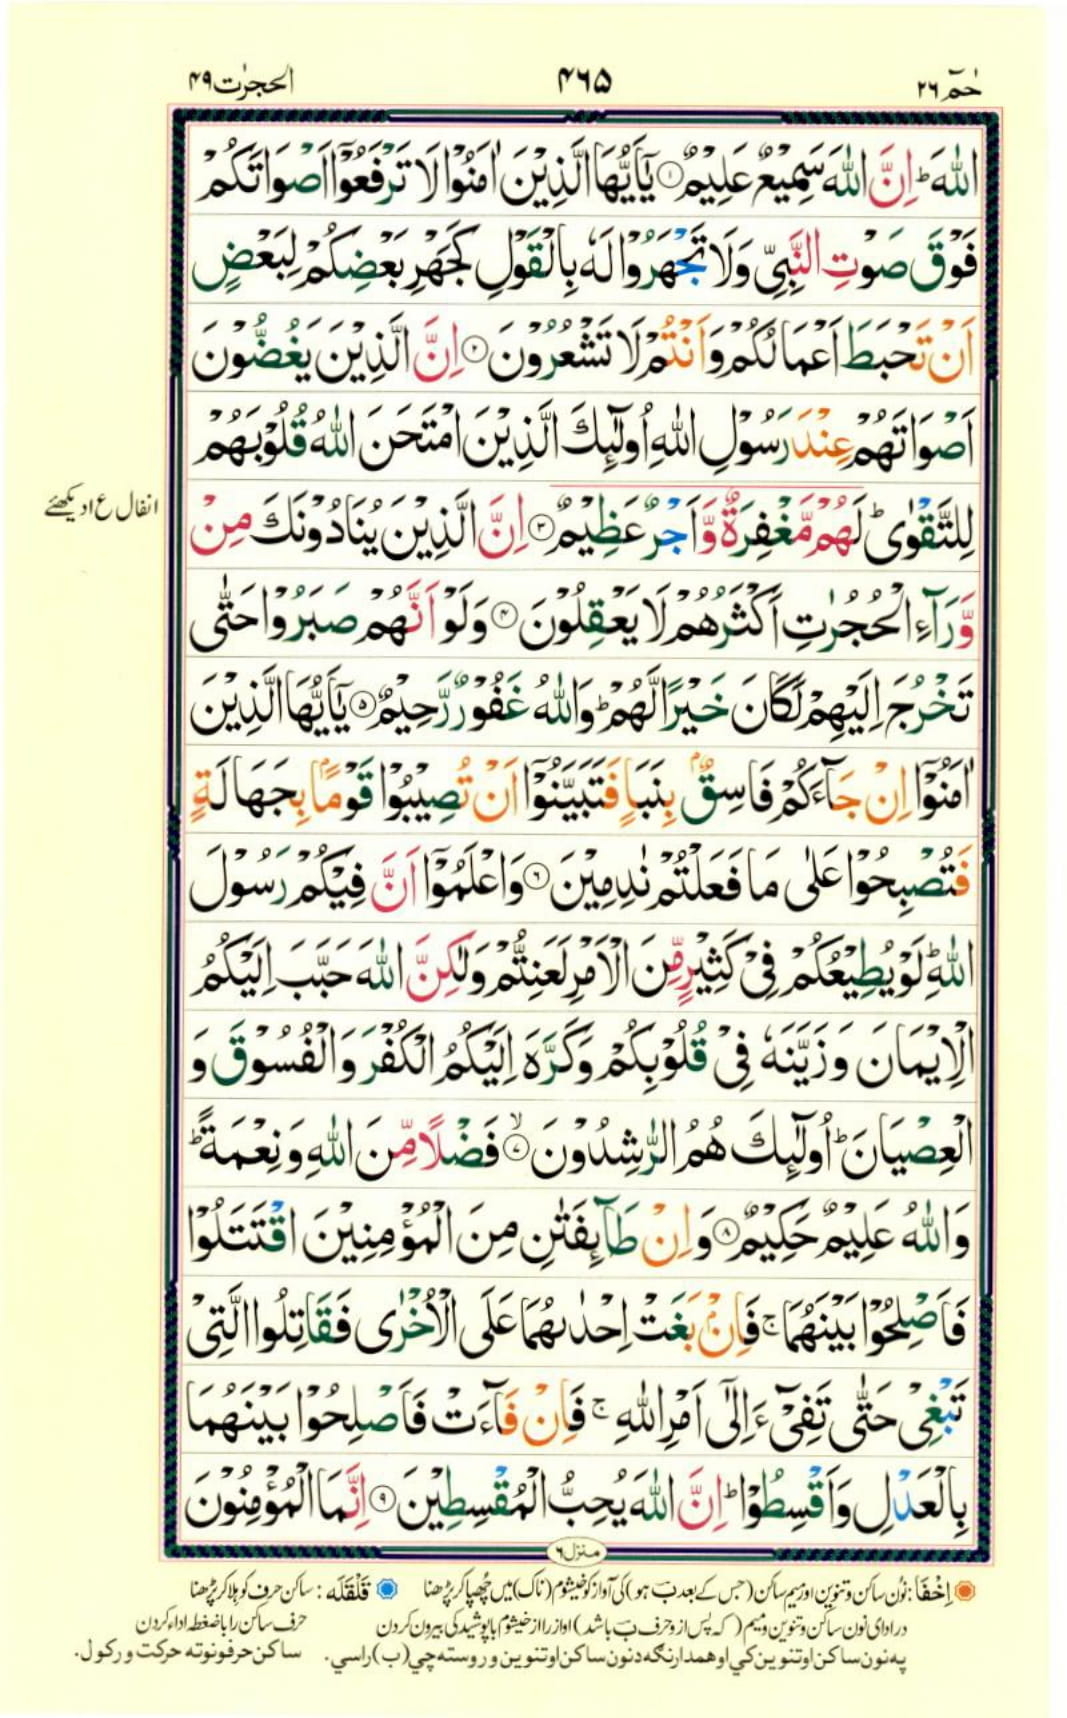 حٰمٓ ٢٦
۴۶۵
الحجرٰت ۴۹
اللّٰهَ ؕ اِنَّ اللّٰهَ سَمِيْعٌ عَلِيْمٌ ۝۱ يٰۤاَيُّهَا الَّذِيْنَ اٰمَنُوْا لَا تَرْفَعُوْۤا اَصْوَاتَكُمْ
فَوْقَ صَوْتِ النَّبِيِّ وَلَا تَجْهَرُوْا لَهٗ بِالْقَوْلِ كَجَهْرِ بَعْضِكُمْ لِبَعْضٍ
اَنْ تَحْبَطَ اَعْمَالُكُمْ وَاَنْتُمْ لَا تَشْعُرُوْنَ ۝۲ اِنَّ الَّذِيْنَ يَغُضُّوْنَ
اَصْوَاتَهُمْ عِنْدَ رَسُوْلِ اللّٰهِ اُولٰٓئِكَ الَّذِيْنَ امْتَحَنَ اللّٰهُ قُلُوْبَهُمْ
لِلتَّقْوٰى ؕ لَهُمْ مَّغْفِرَةٌ وَّاَجْرٌ عَظِيْمٌ ۝۳ اِنَّ الَّذِيْنَ يُنَادُوْنَكَ مِنْ
انفال ع ا دیکھئے
وَّرَآءِ الْحُجُرٰتِ اَكْثَرُهُمْ لَا يَعْقِلُوْنَ ۝۴ وَلَوْ اَنَّهُمْ صَبَرُوْا حَتّٰى
تَخْرُجَ اِلَيْهِمْ لَكَانَ خَيْرًا لَّهُمْ ؕ وَاللّٰهُ غَفُوْرٌ رَّحِيْمٌ ۝۵ يٰۤاَيُّهَا الَّذِيْنَ
اٰمَنُوْۤا اِنْ جَآءَكُمْ فَاسِقٌۢ بِنَبَاٍ فَتَبَيَّنُوْۤا اَنْ تُصِيْبُوْا قَوْمًۢا بِجَهَالَةٍ
فَتُصْبِحُوْا عَلٰى مَا فَعَلْتُمْ نٰدِمِيْنَ ۝۶ وَاعْلَمُوْۤا اَنَّ فِيْكُمْ رَسُوْلَ
اللّٰهِ ؕ لَوْ يُطِيْعُكُمْ فِيْ كَثِيْرٍ مِّنَ الْاَمْرِ لَعَنِتُّمْ وَلٰكِنَّ اللّٰهَ حَبَّبَ اِلَيْكُمُ
الْاِيْمَانَ وَزَيَّنَهٗ فِيْ قُلُوْبِكُمْ وَكَرَّهَ اِلَيْكُمُ الْكُفْرَ وَالْفُسُوْقَ وَ
الْعِصْيَانَ ؕ اُولٰٓئِكَ هُمُ الرّٰشِدُوْنَ ۝۷ۙ فَضْلًا مِّنَ اللّٰهِ وَنِعْمَةً ؕ
وَاللّٰهُ عَلِيْمٌ حَكِيْمٌ ۝۸ وَاِنْ طَآئِفَتٰنِ مِنَ الْمُؤْمِنِيْنَ اقْتَتَلُوْا
فَاَصْلِحُوْا بَيْنَهُمَا ۚ فَاِنْۢ بَغَتْ اِحْدٰىهُمَا عَلَى الْاُخْرٰى فَقَاتِلُوا الَّتِيْ
تَبْغِيْ حَتّٰى تَفِيْٓءَ اِلٰٓى اَمْرِ اللّٰهِ ۚ فَاِنْ فَآءَتْ فَاَصْلِحُوْا بَيْنَهُمَا
بِالْعَدْلِ وَاَقْسِطُوْا ؕ اِنَّ اللّٰهَ يُحِبُّ الْمُقْسِطِيْنَ ۝۹ اِنَّمَا الْمُؤْمِنُوْنَ
منزل ۶
اِخْفَا: نُون ساکن و تنوین اور میم ساکن (جس کے بعد ب ہو) کی آواز کو خیشوم (ناک) میں چھپا کر پڑھنا قَلْقَلَه: ساکن حرف کو ہلا کر پڑھنا
در ادای نون ساکن و تنوین و میم ( که پس از و حرف ب باشد) آواز را از خیشوم با پوشیدگی بیرون کردن حرف ساکن را با ضغطه اداء کردن
په نون ساکن او تنوین کي او همدارنګه د نون ساکن او تنوین وروسته چي (ب) راسي. ساکن حرفونو ته حرکت ورکول.